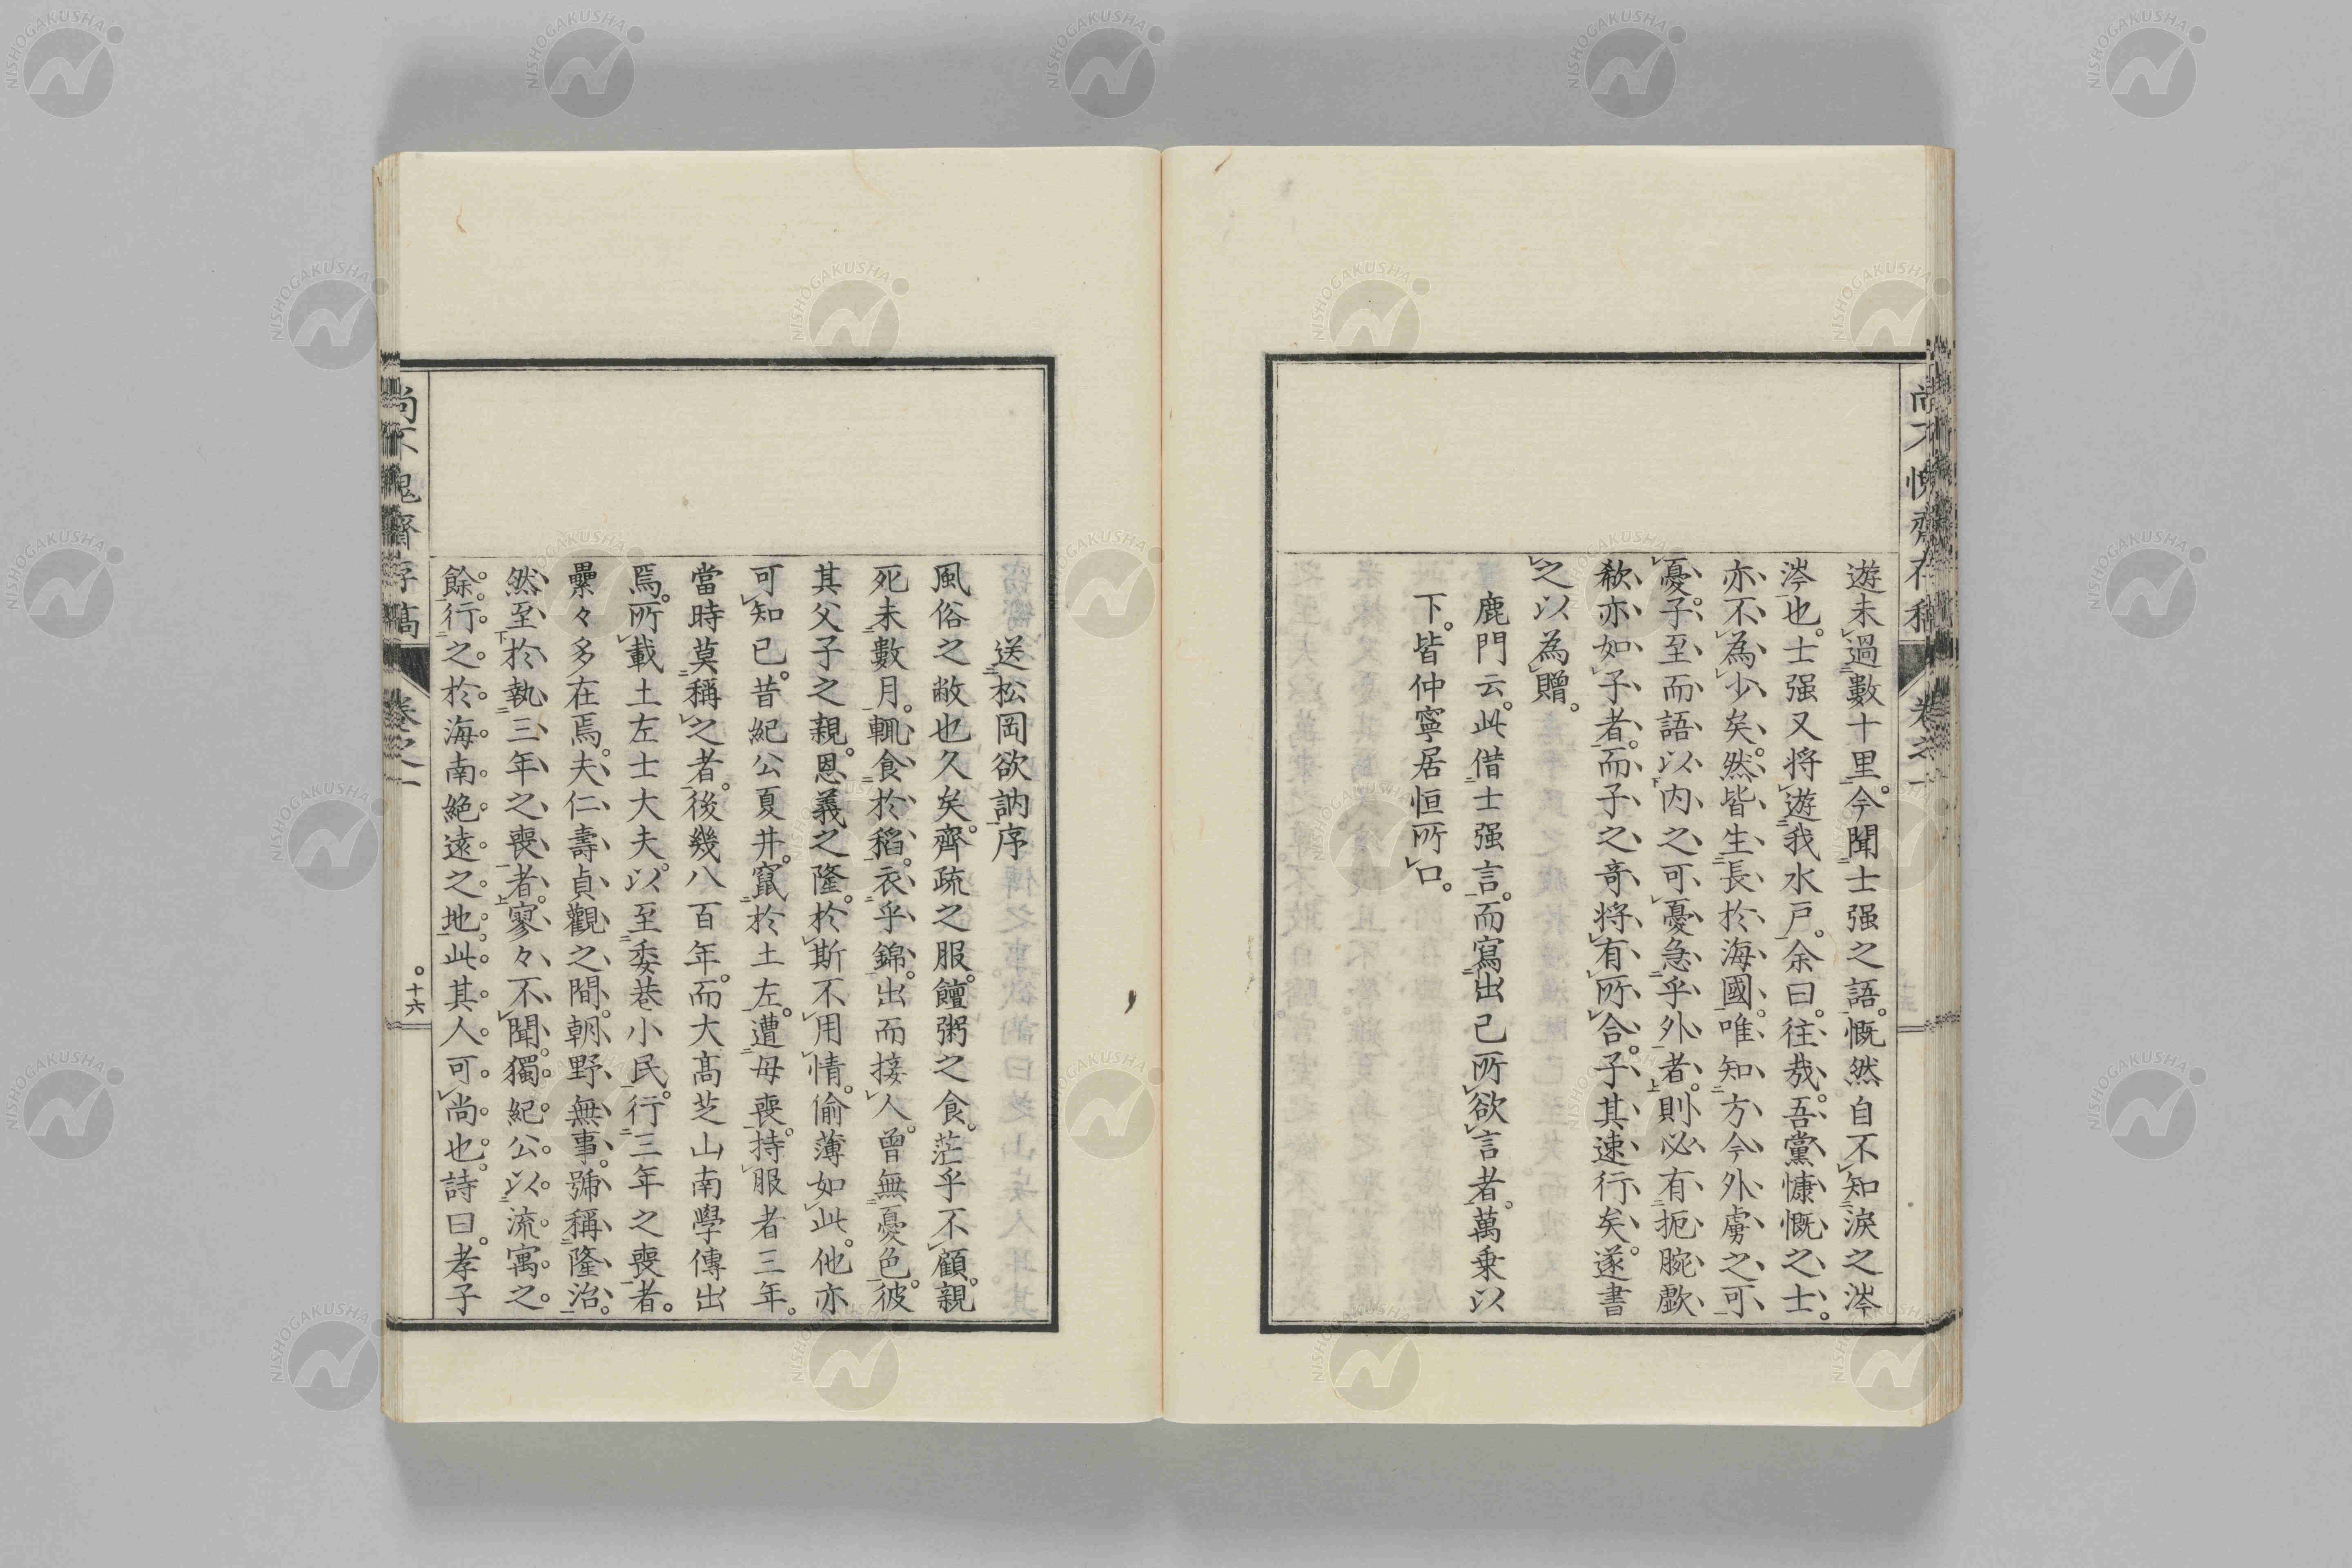 遊未過數十里。今聞士强之語。慨然自不知淚之涔
涔也。士强又将遊我水戸。余曰。往哉。吾黨慷慨之士。
亦不為少矣。然皆生長於海國。唯知方今外虜之可
憂。子至而語以内之可憂急乎外者。則必有扼腕歔
欷亦如子者。而子之竒将有所合。子其速行矣。遂書
之以為贈。
鹿門云。此借士强言。而寫出己所欲言者。萬乗以
下。皆仲寧居恒所口。
送松岡欲訥序
風俗之敝也久矣。齊疏之服。饘粥之食。茫乎不顧。親
死未數月。輒食於稻。衣乎錦。出而接人。曾無憂色。彼
其父子之親。恩義之隆。於斯不用情。偷薄如此。他亦
可知已。昔紀公夏井。竄於土左。遭母喪。持服者三年。
當時莫稱之者。後幾八百年。而大髙芝山南學傳出
焉。所載土左士大夫。以至委巷小民。行三年之喪者。
纍々多在焉。夫仁壽貞觀之間。朝野無事。號稱隆治。
然至於執三年之喪者。寥々不聞。獨紀公以流寓之
餘。行之於海南絶遠之地。此其人可尚也。詩曰。孝子
尚不愧齋存稿
卷之一
十六
NISHOGAKUSHA